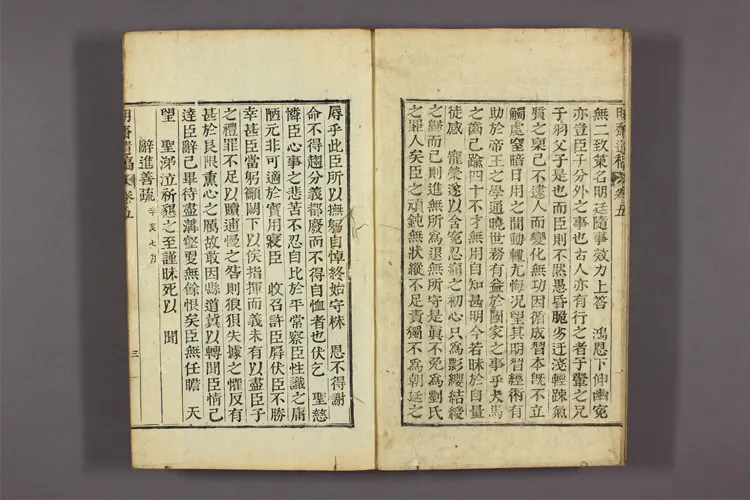 明齋遺稿 卷五
無二致策名明廷隨事效力上答　鴻恩下伸幽寃
亦豈臣子分外之事也古人亦有行之者子羣之兄
子羽父子是也而臣則不黙愚昏脆劣迂淺輕踈氣
質之稟己不逮人而變化無功因循成習本旣不立
觸處窒暗日用之間動輒尤悔况望其明習經術有
助於帝王之學通曉世務有益於國家之事乎犬馬
之齒已踰四十不才無用自知甚明今若昧於自量
徒感　寵榮遂以含寃忍痛之初心只爲影纓結綬
之歸而已則進無所爲退無所守是眞不免爲劉氏
之罪人矣臣之頑鈍無狀縱不足責獨不爲朝廷之
辱乎此臣所以撫躬自悼終始守株　恩不得謝
命不得趨分義都廢而不得自恤者也伏乞　聖慈
憐臣心事之悲苦不忍自比於平常察臣性識之庸
陋元非可適於實用寢臣　收召許臣屛伏臣不勝
幸甚臣當躬顲闕下以俟指揮而義未有以盡臣子
之禮罪不足以贖逋慢之咎則狼狽失據之懼反有
甚於艮限熏心之厲故敢因縣道冀以轉聞臣情己
達臣辭己畢待盡溝壑更無餘恨矣臣無任瞻　天
望　聖涕泣祈懇之至謹昧死以　聞
辭進善疏 辛亥七月
明齋遺稿 卷五
三